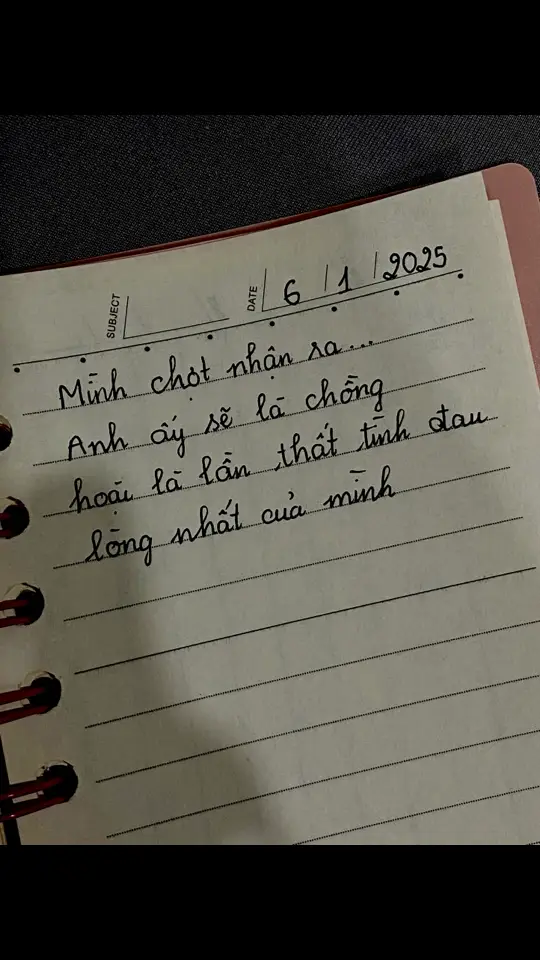 SUBJECT
DATE 6 / 1 / 2025
Mình chợt nhận ra...
Anh ấy sẽ là chồng
hoặc là lần thất tình đau
lòng nhất của mình